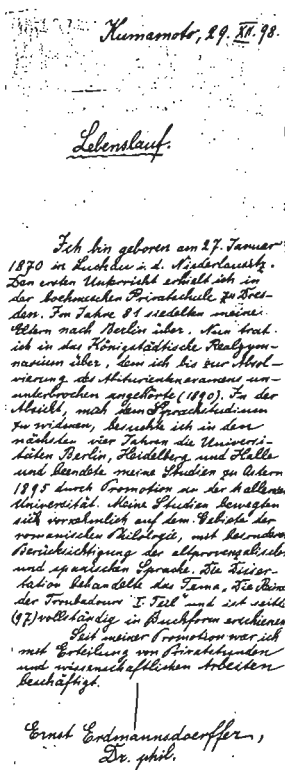 Kumamoto, 29. XII. 98.
Lebenslauf.
Ich bin geboren am 27. Januar
1870 in Luckau i. d. Niederlausitz.
Den ersten Unterricht erhielt ich in
der boehmeschen Privatschule zu Dres-
den. Im Jahre 81 siedelten meine
Eltern nach Berlin über. Nun trat
ich in das Königstädtische Realgym-
nasium über, dem ich bis zur Absol-
vierung des Abiturientenexamens un-
unterbrochen angehörte (1890). In der
Absicht, mich dem Sprachstudium
zu widmen, besuchte ich in den
nächsten vier Jahren die Universi-
täten Berlin, Heidelberg und Halle
und beendete meine Studien zu Ostern
1895 durch Promotion an der hallenser
Universität. Meine Studien bewegten
sich vornehmlich auf dem Gebiete der
romanischen Philologie, mit besonderer
Berücksichtigung der altprovenzalischen
und spanischen Sprache. Die Disser-
tation behandelte das Tema, Die Reime
der Troubadours I. Teil und ist seither
(97) vollständig in Buchform erschienen.
Seit meiner Promotion war ich
mit Erteilung von Privatstunden
und wissenschaftlichen Arbeiten
beschäftigt.
Ernst Erdmannsdoerffer,
Dr. phil.